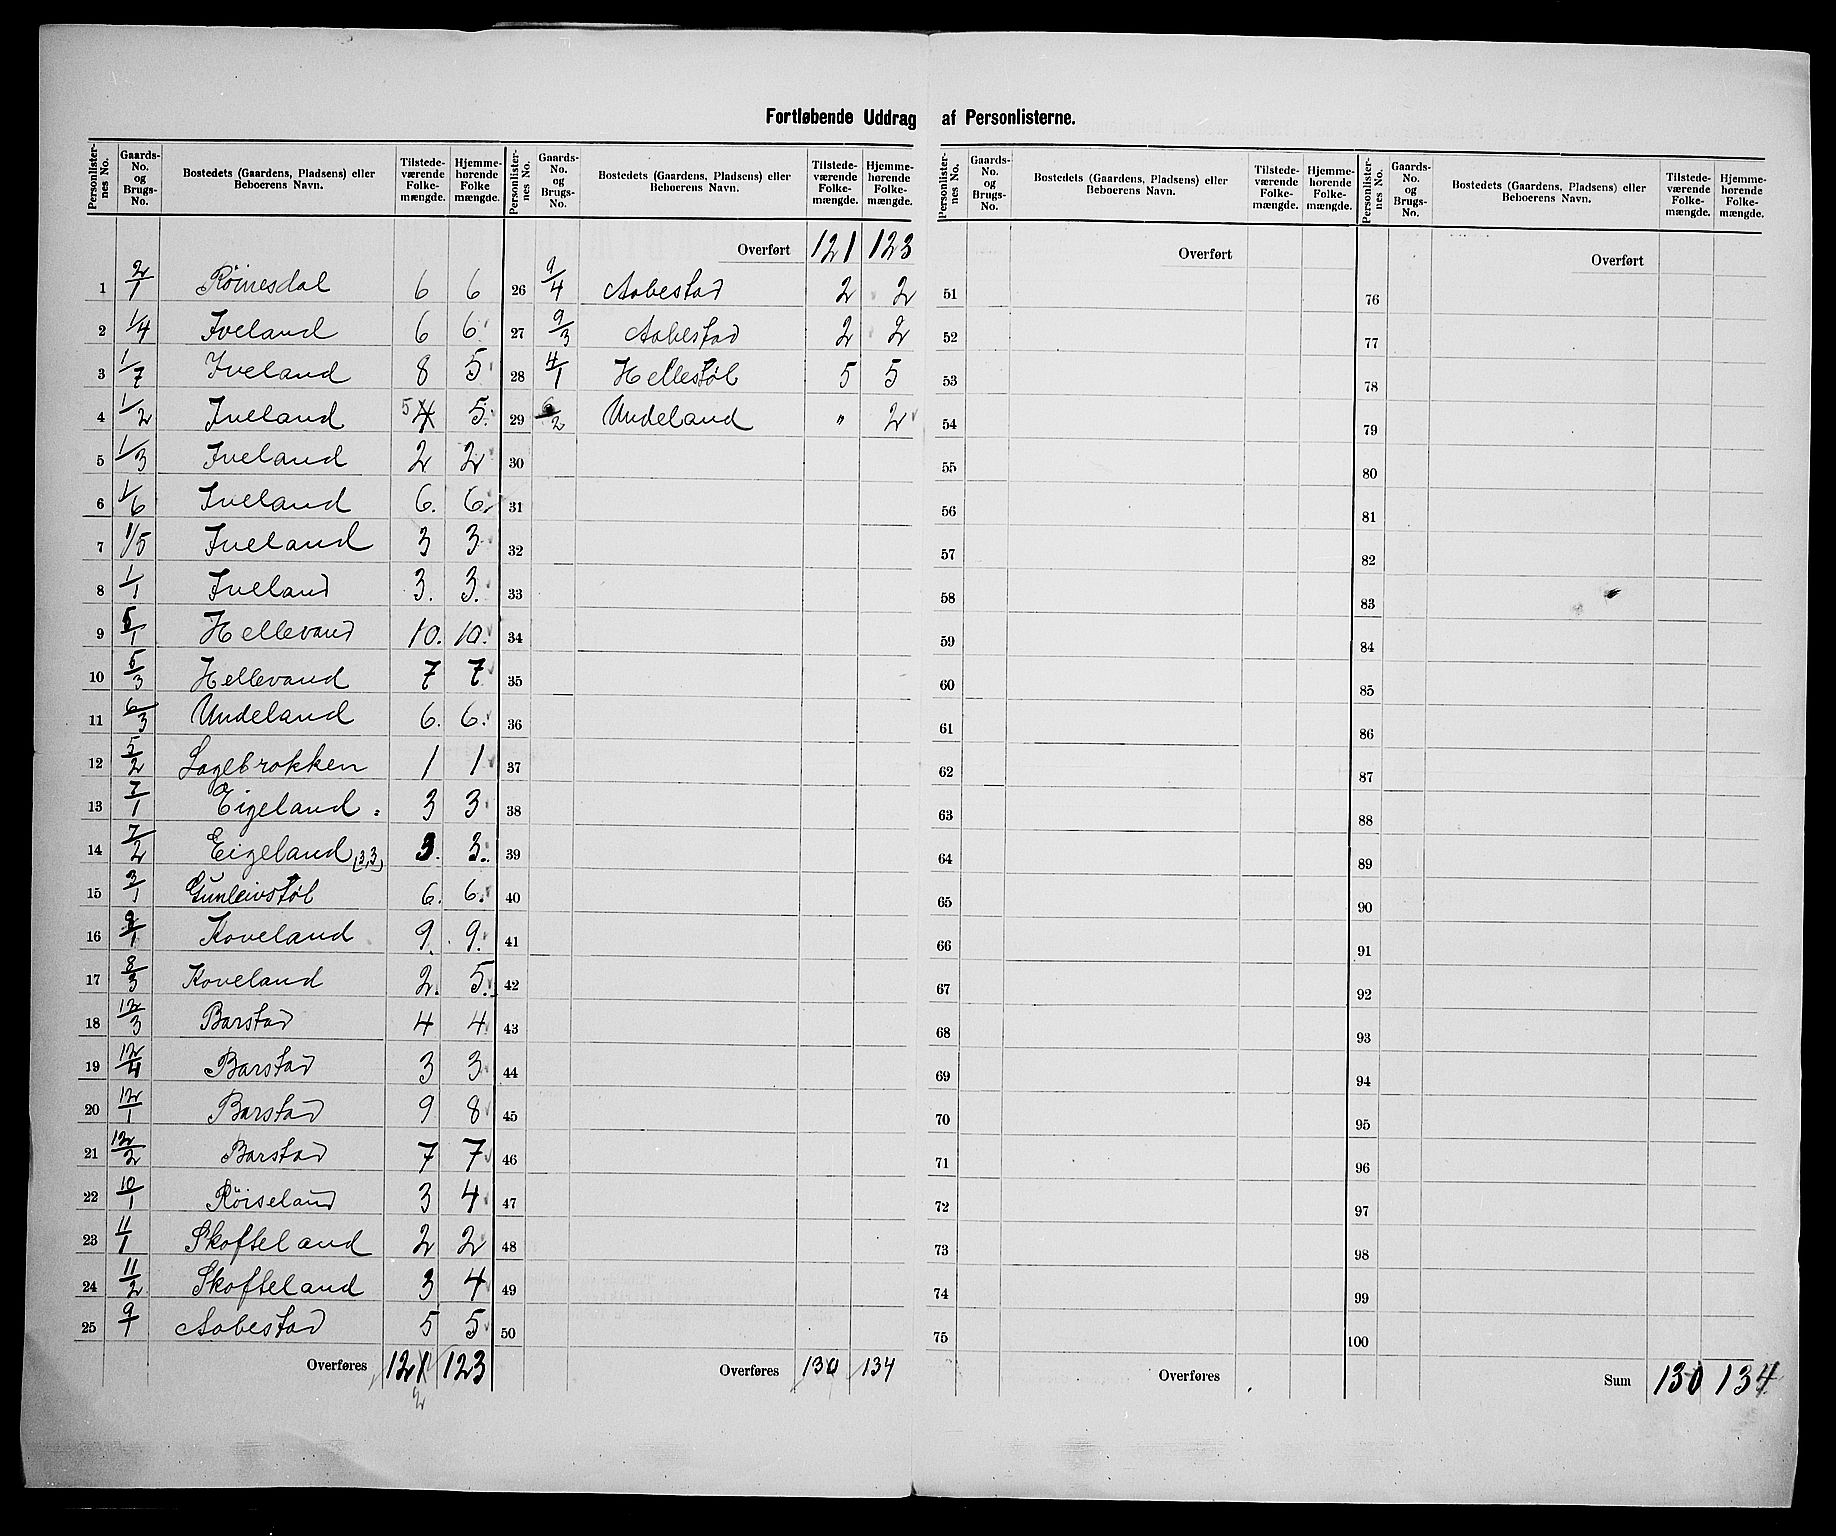 Fortløbende Uddrag af Personlisterne.
Personlister-nes No. | Gaards-No. og Brugs-No. | Bostedets (Gaardens, Pladsens) eller Beboerens Navn. | Tilstede-værende Folke-mængde. | Hjemme-hørende Folke mængde.
1 2/1 Röinesdal 6 6
2 1/4 Iveland 6 6
3 1/7 Iveland 8 5
4 1/2 Iveland 5 4 5
5 1/3 Iveland 2 2
6 1/6 Iveland 6. 6
7 1/5 Iveland 3 3
8 1/1 Iveland 3. 3.
9 5/1 Hellevand 10. 10.
10 5/3 Hellevand 7 7
11 6/3 Undeland 6. 6.
12 5/2 Lagebrokken 1 1
13 7/1 Eigeland 3 3
14 7/2 Eigeland (3,3) 3. 3.
15 3/1 Gunleivstøl 6. 6.
16 8/1 Koveland 9. 9.
17 8/3 Koveland 2. 5.
18 12/3 Barstad 4 4
19 12/4 Barstad 3 3
20 12/1 Barstad 9 8
21 12/2 Barstad 7 7
22 10/1 Röiseland 3 4
23 11/1 Skofteland 2 2
24 11/2 Skofteland 3 4
25 9/1 Aabestad 5 5
Overføres 121 123
2
Personlister-nes No. | Gaards-No. og Brugs-No. | Bostedets (Gaardens, Pladsens) eller Beboerens Navn. | Tilstede-værende Folke-mængde. | Hjemme-hørende Folke-mængde.
Overført 121 123
26 9/4 Aabestad 2 2
27 9/3 Aabestad 2 2
28 4/1 Hellestøl 5 5
29 6/2 Undeland " 2
30
31
32
33
34
35
36
37
38
39
40
41
42
43
44
45
46
47
48
49
50
Overføres 130 134
Personlister-nes No. | Gaards-No. og Brugs-No. | Bostedets (Gaardens, Pladsens) eller Beboerens Navn. | Tilstede-værende Folke-mængde. | Hjemme-hørende Folke-mængde.
Overført
51
52
53
54
55
56
57
58
59
60
61
62
63
64
65
66
67
68
69
70
71
72
73
74
75
Overføres
Personlister-nes No. | Gaards-No. og Brugs-No. | Bostedets (Gaardens, Pladsens) eller Beboerens Navn. | Tilstede-værende Folke-mængde. | Hjemme-hørende Folke-mængde.
Overført
76
77
78
79
80
81
82
83
84
85
86
87
88
89
90
91
92
93
94
95
96
97
98
99
100
Sum 130 134